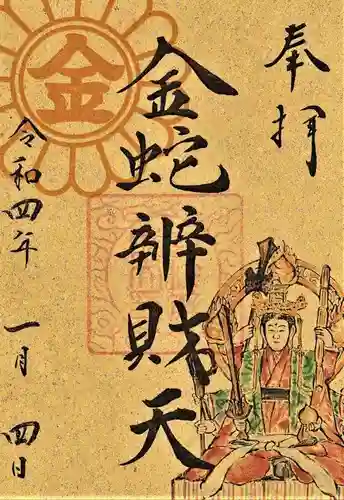 奉拝
金蛇辨財天
令和四年 一月 四日
金